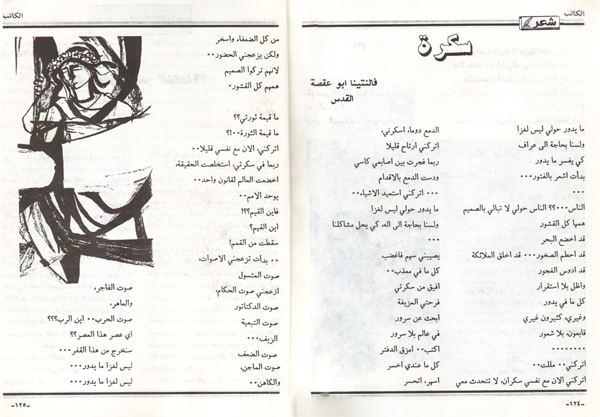 الكاتب
شعر
سكرة
فالنتينا ابو عقصة
القدس
ما يدور حولي ليس لغزا
ولسنا بحاجة الى عراف
كي يفسر ما يدور
بدأت اشعر بالفتور...
...
الناس...؟؟ الناس حولي لا تبالي بالصميم
همها كل القشور
قد اخضع البحر
قد احطم الصخور... قد اخلق الملائكة
قد ادوس الفجور
واظل بلا استقرار
كل ما في يدور
وغيري، كثيرون غيري
قابعون، بلا شعور
...
اتركني.. مللت..
اتركني الان مع نفسي سكران، لا تتحدث معي
الدمع دوما، اسكرني،
اتركني ارتاح قليلا
ربما فجرت بين اصابعي كاسي
ودست الدمع بالاقدام
... اتركني استعيد الاشياء..
ما يدور حولي ليس لغزا
ولسنا بحاجة الى اله، كي يحل مشاكلنا
...
يصيبني سهم فاغضب
كل ما في معذب..
افيق من سكرتي
فرحتي المزيفة
ابحث عن سرور
في عالم بلا سرور
اكتب.. امزق الدفتر
كل ما عندي اخسر
اسهر، اتحسر
-١٢٤-
الكاتب
من كل الضعفاء، واسخر
ولكن يزعجني الحضور..
لانهم تركوا الصميم
همهم كل القشور.
ما قيمة ثورتي؟؟
ما قيمة الثورة..؟؟
اتركني، الان مع نفسي قليلا..
ربما في سكرتي، استخلصت الحقيقة،
اخضعت العالم لقانون واحد..
يوحد الامم..
فاين القيم؟؟!
اين القيم؟
سقطت من القمم!
.. بدأت تزعجني الاصوات،
صوت المتسول
ازعجني صوت الحكام،
صوت الدكتاتور
صوت التبعية
الزيف...
صوت الضعف
صوت الماجن،
والكاهن..
صوت الفاجر،
والماهر،
صوت الحرب.. اين الرب؟؟؟
اي عصر هذا العصر؟؟
سنخرج من هذا القفر...
ليس لغزا ما يدور..
ليس لغزا ما يدور..
-١٢٥-